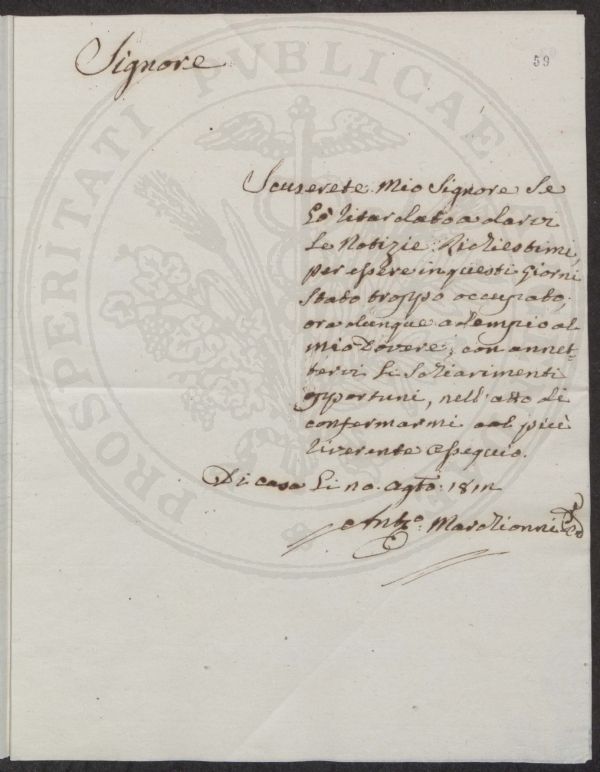 Signore
59
PROSPERITATI PVBLICAE
Scuserete Mio Signore Se
ho ritardato a darvi
Le Notizie Richiestimi,
per essere in questi Giorni
Stato troppo occupato.
ora dunque adempio al
mio Dovere, con annet-
tervi Li Schiarimenti
opportuni, nell'atto di
confermarmi col più
riverente Ossequio.
Di casa Li Agto. 181
Anto. Marchionni